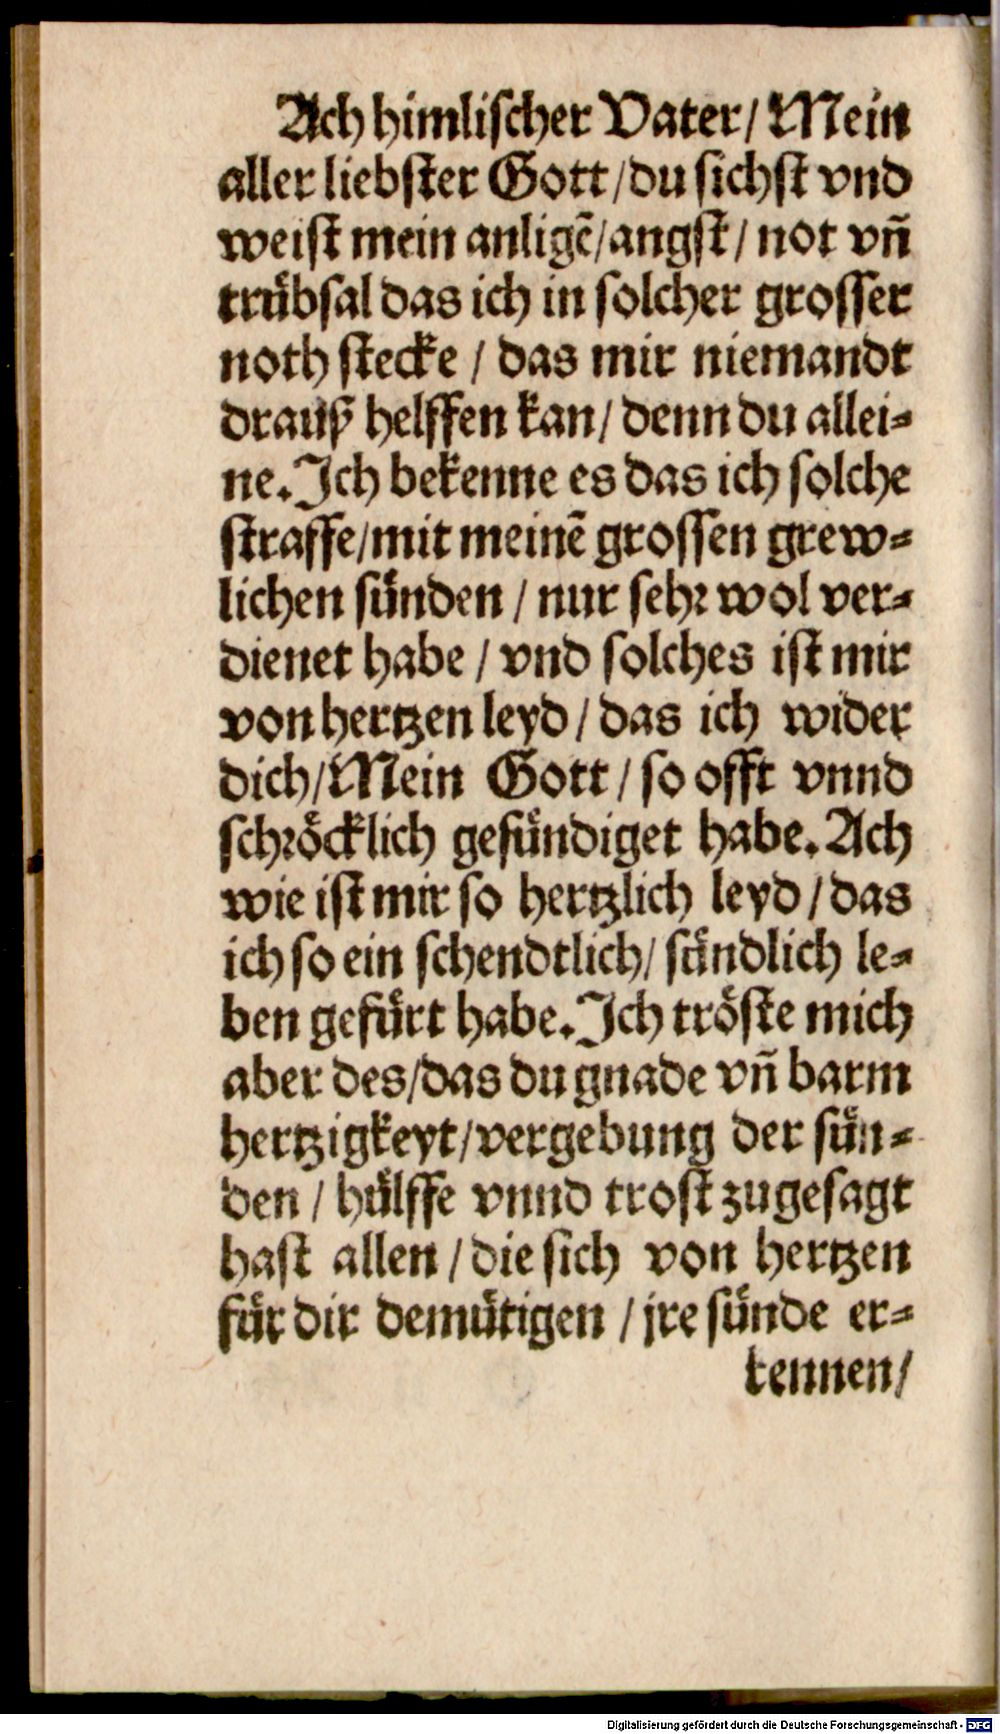 Ach himlischer Vater / Mein
aller liebster Gott / du sichst vnd
weist mein anligẽ / angst / not vñ
trübsal das ich in solcher grosser
noth stecke / das mir niemandt
drauß helffen kan / denn du allei⸗
ne. Ich bekenne es das ich solche
straffe / mit meinẽ grossen grew⸗
lichen sünden / nur sehr wol ver⸗
dienet habe / vnd solches ist mir
von hertzen leyd / das ich wider
dich / Mein Gott / so offt vnnd
schröcklich gesündiget habe. Ach
wie ist mir so hertzlich leyd / das
ich so ein schendtlich / sündlich le⸗
ben gefürt habe. Ich tröste mich
aber des / das du gnade vñ barm
hertzigkeyt / vergebung der sün⸗
den / hülffe vnnd trost zugesagt
hast allen / die sich von hertzen
für dir demütigen / jre sünde er⸗
kennen /
Digitalisierung gefördert durch die Deutsche Forschungsgemeinschaft - DFG